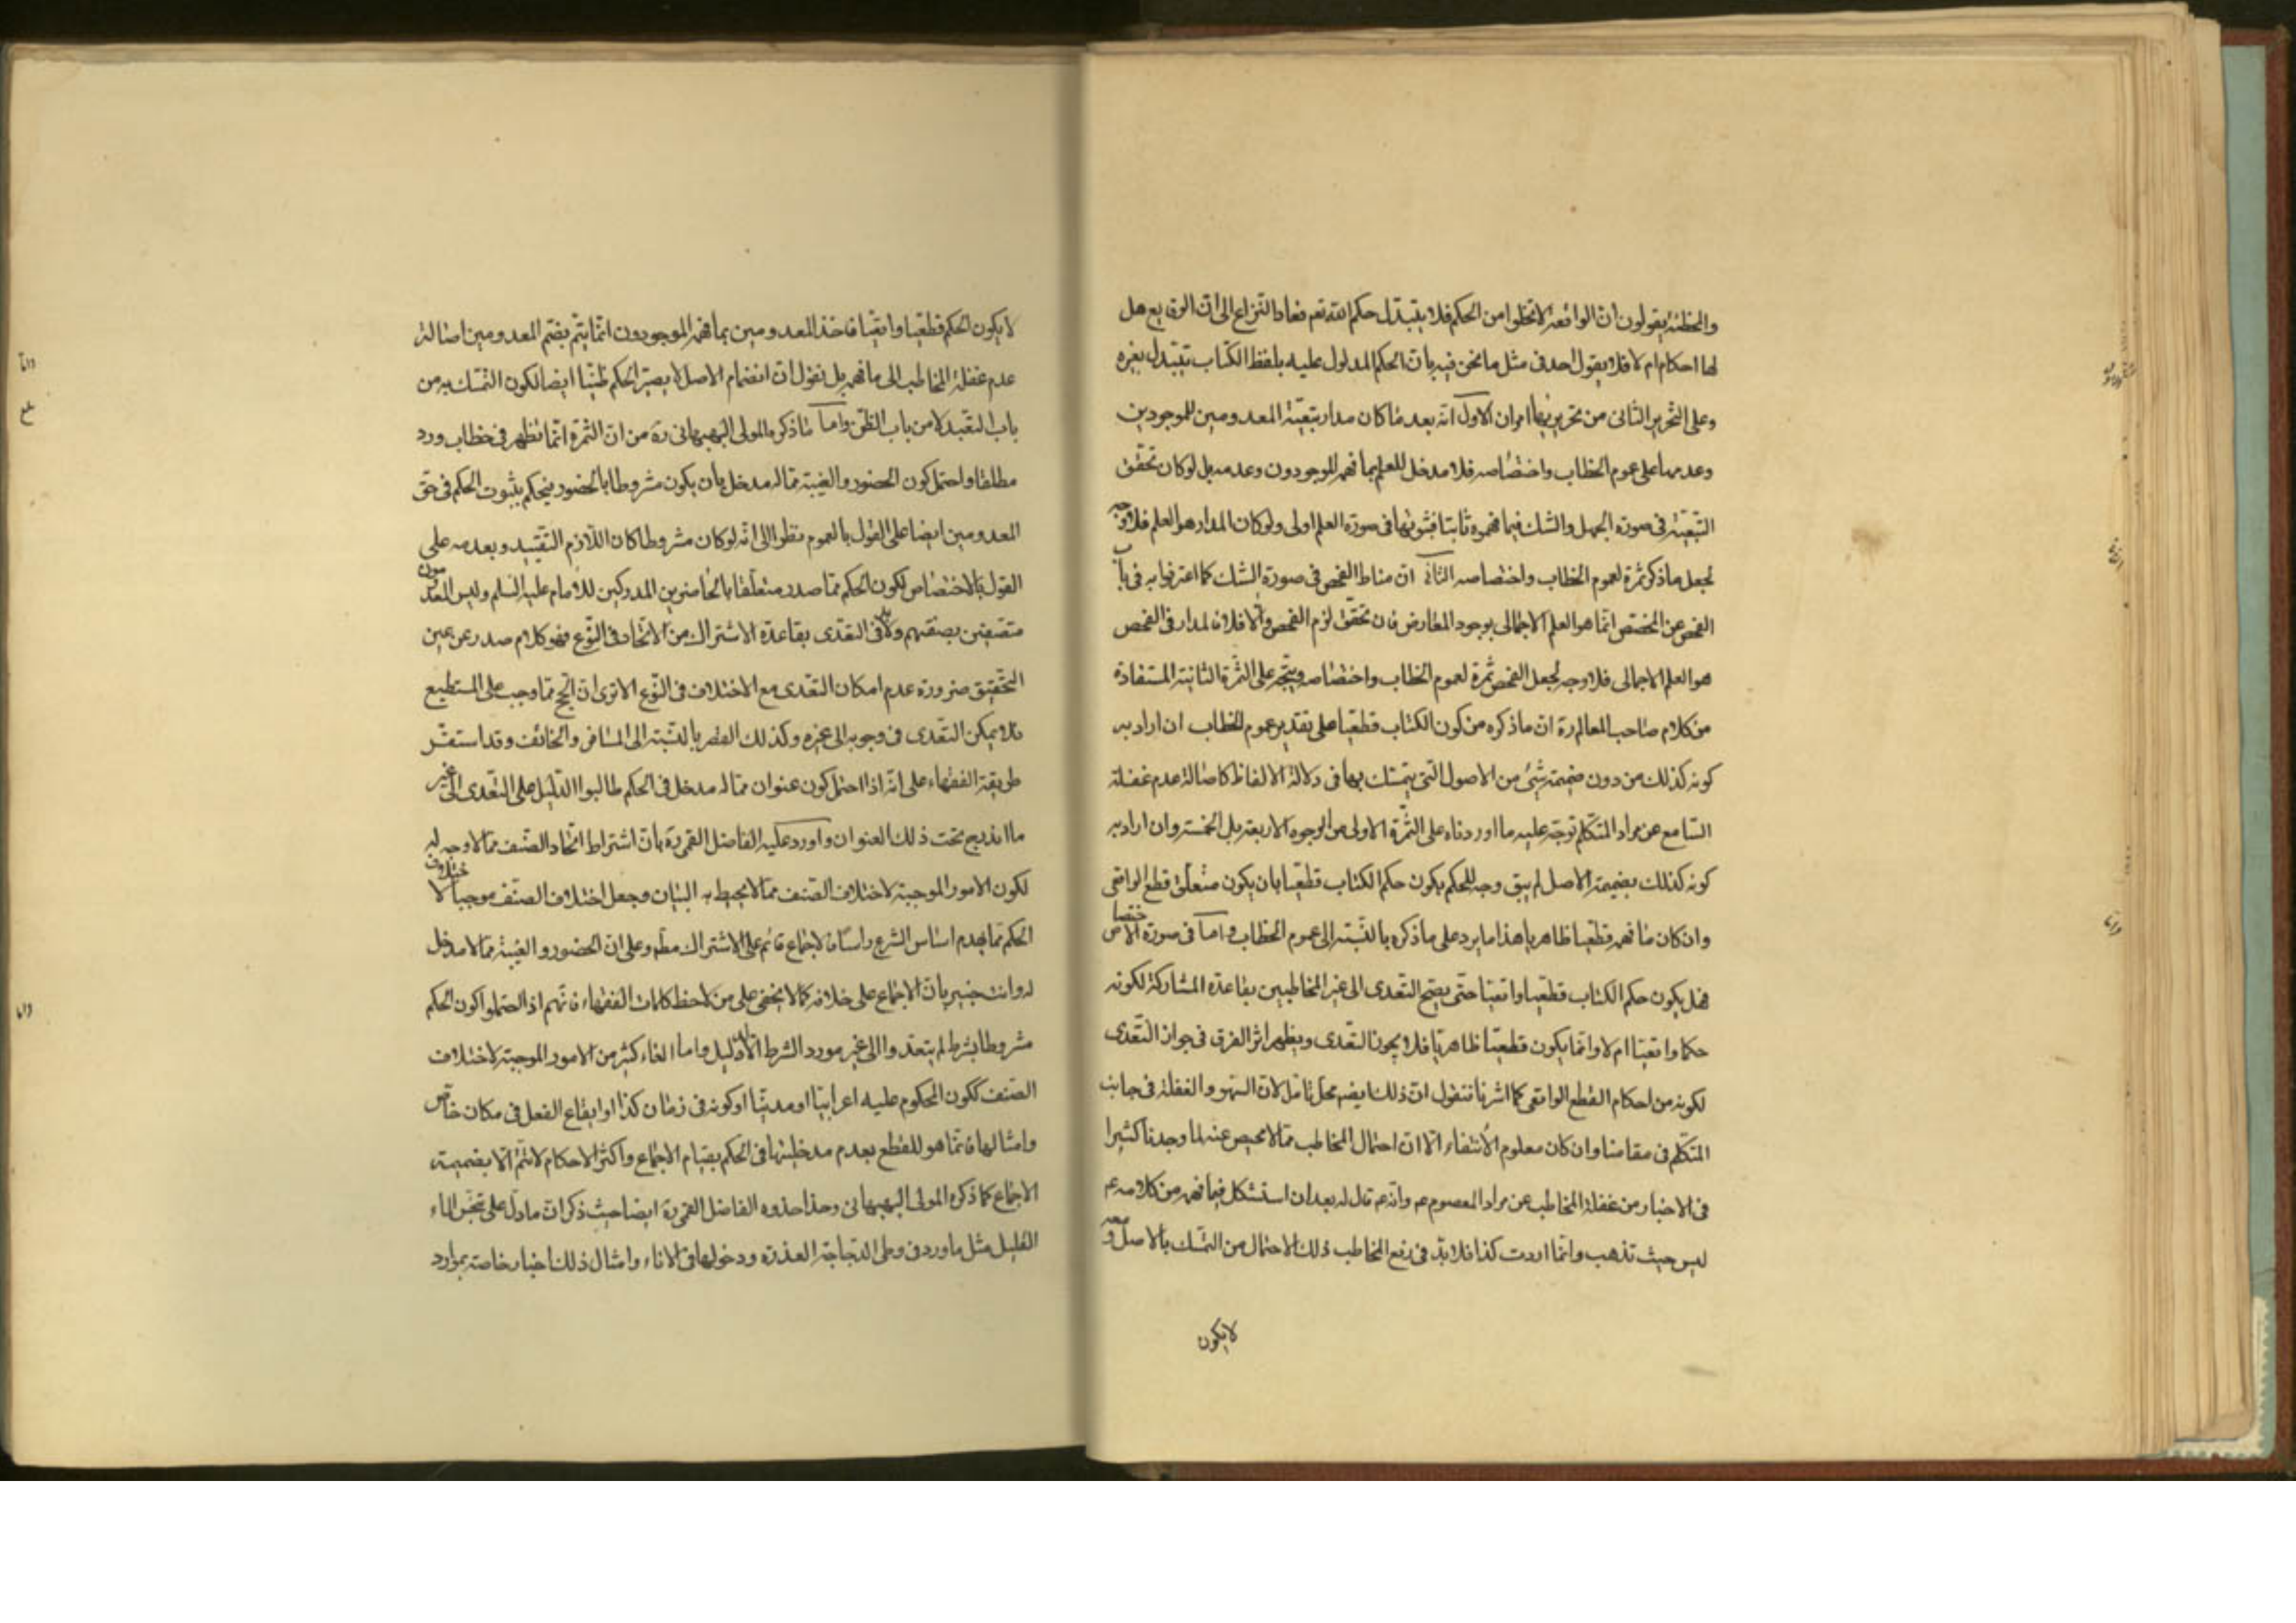 والمخطئة يقولون ان الواقعة لا تخلوا من الحكم فلا يتبدل حكم الله تعم فعاد النزاع الى ان الوقايع هل
لها احكام ام لا فلا يقول احد فى مثل ما نحن فيه بان الحكم المدلول عليه بلفظ الكتاب يتبدل بغيره
وعلى التحرير الثانى من تحريريها امران الاول انه بعد ما كان مدار تبعية المعدومين للموجودين
وعدمها على عموم الخطاب واختصاصه فلا مدخل للعلم بما فهمه الموجودون وعدمه بل لو كان تحقق
التبعية فى صورة الجهل والشك فيما فهموه ثابتا فثبوتها فى صورة العلم اولى ولو كان المدار هو العلم فلا وجه
لجعل ما ذكر ثمرة لعموم الخطاب واختصاصه الثانى ان مناط الفحص فى صورة الشك كما اعترفوا به فى باب
الفحص عن المخصص انما هو العلم الاجمالى بوجود المعارض فان تحقق لزم الفحص والا فلا فالمدار فى الفحص
هو العلم الاجمالى فلا وجه لجعل الفحص ثمرة لعموم الخطاب واختصاصه ويتجه على الثمرة الثانية المستفادة
من كلام صاحب المعالم ره ان ما ذكره من كون الكتاب قطعيا على تقدير عموم الخطاب ان اراد به
كونه كذلك من دون ضميمة شئ من الاصول التى يتمسك بها فى دلالة الالفاظ كاصالة عدم غفلة
السامع عن مراد المتكلم توجه عليه ما اوردناه على الثمرة الاولى من الوجوه الاربعة بل الخمسة وان اراد به
كونه كذلك بضميمة الاصل لم يبق وجه للحكم بكون حكم الكتاب قطعيا بان يكون متعلق قطع الواقعى
وان كان ما فهمه قطعيا ظاهريا هذا ما يرد على ما ذكره بالنسبة الى عموم الخطاب واما فى صورة الاختصاص
فهل يكون حكم الكتاب قطعيا واقعيا حتى يصح التعدى الى غير المخاطبين بقاعدة المشاركة لكونه
حكما واقعيا ام لا وانما يكون قطعيا ظاهريا فلا يجوز التعدى ويظهر اثر الفرق فى جواز التعدى
لكونه من احكام القطع الواقعى كما اشرنا فنقول ان ذلك ايضم محل تامل لان السهو والغفلة فى جانب
المتكلم فى مقامنا وان كان معلوم الانتفاء الا ان احتمال المخاطب مما لا محيص عنه لما وجدنا كثيرا
فى الاخبار من غفلة المخاطب عن مراد المعصوم عم وانه عم قال له بعد ان استشكل فيما فهمه من كلامه عم
ليس حيث تذهب وانما اردت كذا فلا بد فى دفع المخاطب ذلك الاحتمال من التمسك بالاصل ومعه
لا يكون
لا يكون الحكم قطعيا واقعيا فاخذ المعدومين بما فهمه الموجودون انما يتم بضم المعدومين اصالة
عدم غفلة المخاطب الى ما فهمه بل نقول ان انضمام الاصل لا يصير الحكم ظنيا ايضا لكون التمسك به من
باب التعبد لا من باب الظن واما ما ذكره المولى البهبهانى ره من ان الثمرة انما تظهر فى خطاب ورد
مطلقا واحتمل كون الحضور والغيبة مما له مدخل بان يكون مشروطا بالحضور فيحكم بثبوت الحكم فى حق
المعدومين ايضا على القول بالعموم نظرا الى انه لو كان مشروطا كان اللازم التقييد وبعدمه على
القول بالاختصاص لكون الحكم مما صدر متعلقا بالحاضرين المدركين للامام عليه السلم وليس المعدومون
متصفين بصفتهم ولا بد فى التعدى بقاعدة الاشتراك من الاتحاد فى النوع فهو كلام صدر عن عين
التحقيق ضرورة عدم امكان التعدى مع الاختلاف فى النوع الا ترى ان الحج مما وجب على المستطيع
فلا يمكن التعدى فى وجوبه الى غيره وكذلك القصر بالنسبة الى المسافر والخائف وقد استقر
طريقة الفقهاء على انه اذا احتمل كون عنوان مما له مدخل فى الحكم طالبوا الدليل على التعدى الى غير
ما اندرج تحت ذلك العنوان واورد عليه الفاضل القمى ره بان اشتراط اتحاد الصنف مما لا وجه له
لكون الامور الموجبة لاختلاف الصنف مما لا يحيط به البيان وجعل اختلاف الصنف موجبا لاختلاف
الحكم مما يهدم اساس الشرع راسا فالاجماع قائم على الاشتراك مطم وعلى ان الحضور والغيبة مما لا مدخل
له وانت خبير بان الاجماع على خلافه كما لا يخفى على من لاحظ كلمات الفقهاء فانهم اذا احتملوا كون الحكم
مشروطا بشرط لم يتعدوا الى غير مورد الشرط الا بالدليل واما الغاء كثير من الامور الموجبة لاختلاف
الصنف ككون المحكوم عليه اعرابيا او مدنيا او كونه فى زمان كذا او ايقاع الفعل فى مكان خاص
وامثالها فانما هو للقطع بعدم مدخليتها فى الحكم بقيام الاجماع واكثر الاحكام لا تتم الا بضميمة
الاجماع كما ذكره المولى البهبهانى وحذا حذوه الفاضل القمى ره ايضا حيث ذكر ان ما دل على تنجس الماء
القليل مثل ما ورد فى وطى الدجاجة العذرة ودخولها فى الاناء وامثال ذلك اخبار خاصة بموارد